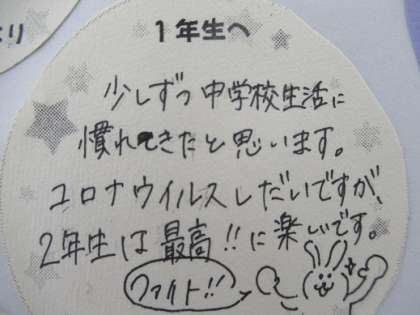 より
1年生へ
少しずつ中学校生活に
慣れてきたと思います。
コロナウイルスしだいですが、
2年生は最高!!に楽しいです。
ファイト!!